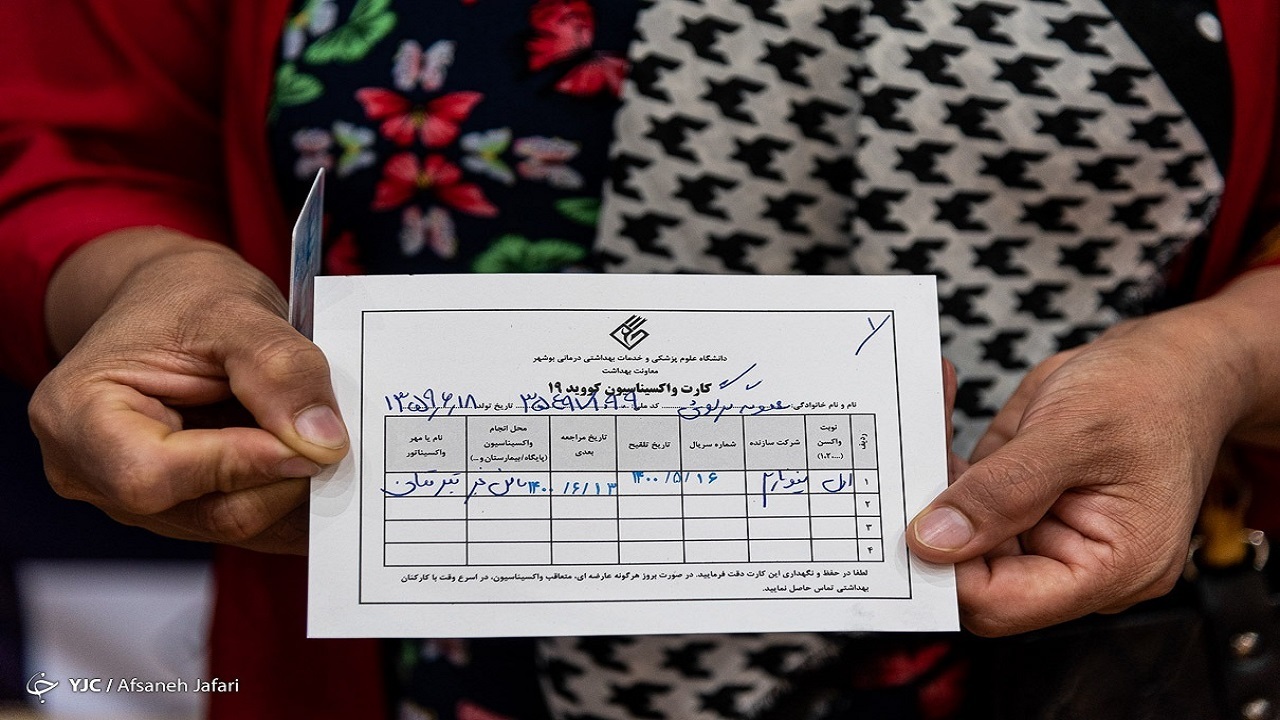 ۷
دانشگاه علوم پزشکی و خدمات بهداشتی درمانی بوشهر
معاونت بهداشت
کارت واکسیناسیون کووید ۱۹
نام و نام خانوادگی: کد ملی: تاریخ تولد: ۱۳۵۹/۶/۱۸
ردیف نوبت واکسن (...،۱،۲) شرکت سازنده شماره سریال تاریخ تلقیح تاریخ مراجعه بعدی محل انجام واکسیناسیون (پایگاه/بیمارستان و...) نام یا مهر واکسیناتور
۱ اول ۱۴۰۰/۵/۱۶ ۱۴۰۰/۶/۱۳
۲
۳
۴
لطفا در حفظ و نگهداری این کارت دقت فرمایید. در صورت بروز هرگونه عارضه ای، متعاقب واکسیناسیون، در اسرع وقت با کارکنان
بهداشتی تماس حاصل نمایید.
YJC / Afsaneh Jafari